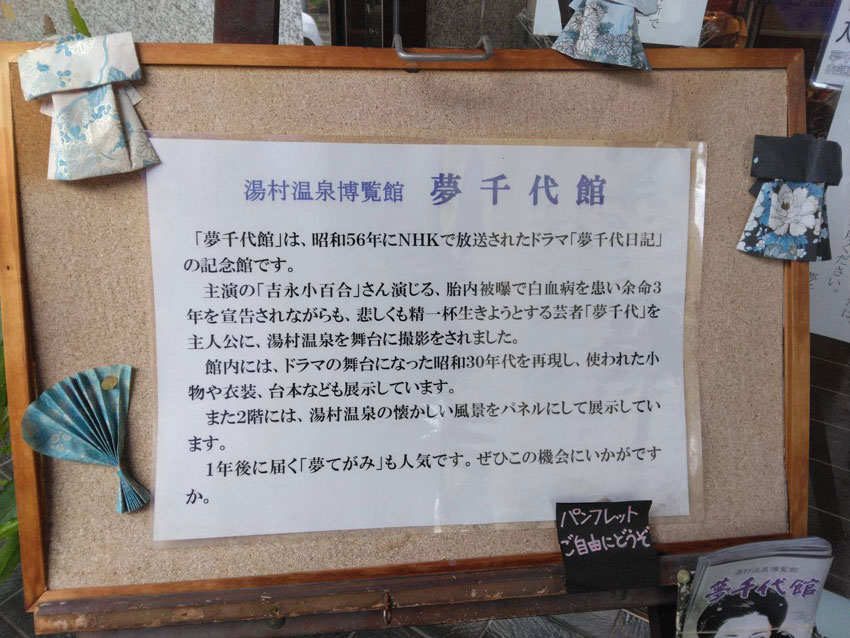 湯村温泉博覧館 夢千代館
「夢千代館」は、昭和56年にNHKで放送されたドラマ「夢千代日記」
の記念館です。
主演の「吉永小百合」さん演じる、胎内被曝で白血病を患い余命3
年を宣告されながらも、悲しくも精一杯生きようとする芸者「夢千代」を
主人公に、湯村温泉を舞台に撮影をされました。
館内には、ドラマの舞台になった昭和30年代を再現し、使われた小
物や衣装、台本なども展示しています。
また2階には、湯村温泉の懐かしい風景をパネルにして展示してい
ます。
1年後に届く「夢てがみ」も人気です。ぜひこの機会にいかがです
か。
パンフレット
ご自由にどうぞ
湯村温泉博覧館
夢千代館